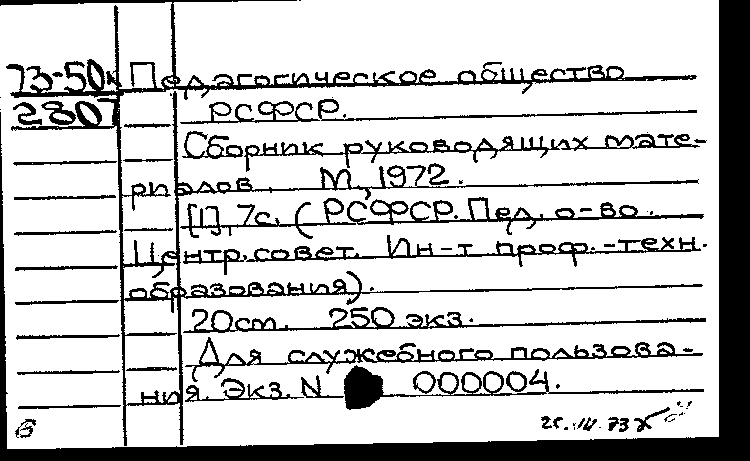 73-50к Педагогическое общество
2807 РСФСР.
Сборник руководящих мате-
риалов. М., 1972.
[1], 7с. (РСФСР. Пед. о-во.
Центр. совет. Ин-т проф.-техн.
образования).
20см. 250 экз.
Для служебного пользова-
ния. Экз. N 000004.